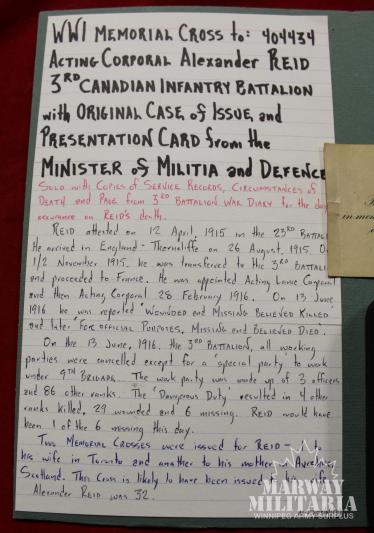 WWI MEMORIAL CROSS to: 404434
ACTING CORPORAL ALEXANDER REID
3RD CANADIAN INFANTRY BATTALION
with ORIGINAL CASE of ISSUE and
PRESENTATION CARD from the
MINISTER of MILITIA and DEFENCE
SOLD WITH COPIES OF SERVICE RECORDS, CIRCUMSTANCES OF
DEATH AND PAGE FROM 3RD BATTALION WAR DIARY FOR THE DAY
REID'S DEATH.
REID ATTESTED ON 12 APRIL, 1915 IN THE 23RD
HE ARRIVED IN ENGLAND - 26 AUGUST, 1915.
1/2 NOVEMBER 1915, HE WAS TRANSFERRED TO THE 3RD
AND PROCEEDED TO FRANCE. HE WAS APPOINTED ACTING LANCE CORPORAL
AND THEN ACTING CORPORAL 28 FEBRUARY 1916. ON 13 JUNE,
1916 HE WAS REPORTED "WOUNDED AND MISSING BELIEVED KILLED
AND LATER "FOR OFFICIAL PURPOSES, MISSING AND BELIEVED DIED.
ON THE 13 JUNE, 1916, THE 3RD BATTALION, ALL WORKING
PARTIES WERE CANCELLED EXCEPT FOR A 'SPECIAL PARTY' TO WORK
UNDER 9TH BRIGADE. THE WORK PARTY WAS MADE UP OF 3 OFFICERS
AND 86 OTHER RANKS. THE "DANGEROUS DUTY" RESULTED IN 4 OTHER
RANKS KILLED, 29 WOUNDED AND 6 MISSING. REID WOULD HAVE
BEEN 1 OF THE 6 MISSING THIS DAY.
TWO MEMORIAL CROSSES WERE ISSUED FOR REID - TO
HIS WIFE IN TORONTO AND ANOTHER TO HIS MOTHER IN
SCOTLAND. THIS CROSS IS LIKELY TO HAVE BEEN ISSUED TO HIS
ALEXANDER REID WAS 32.
in mem
MARWAY
MILITARIA
WINNIPEG ARMY SURPLUS